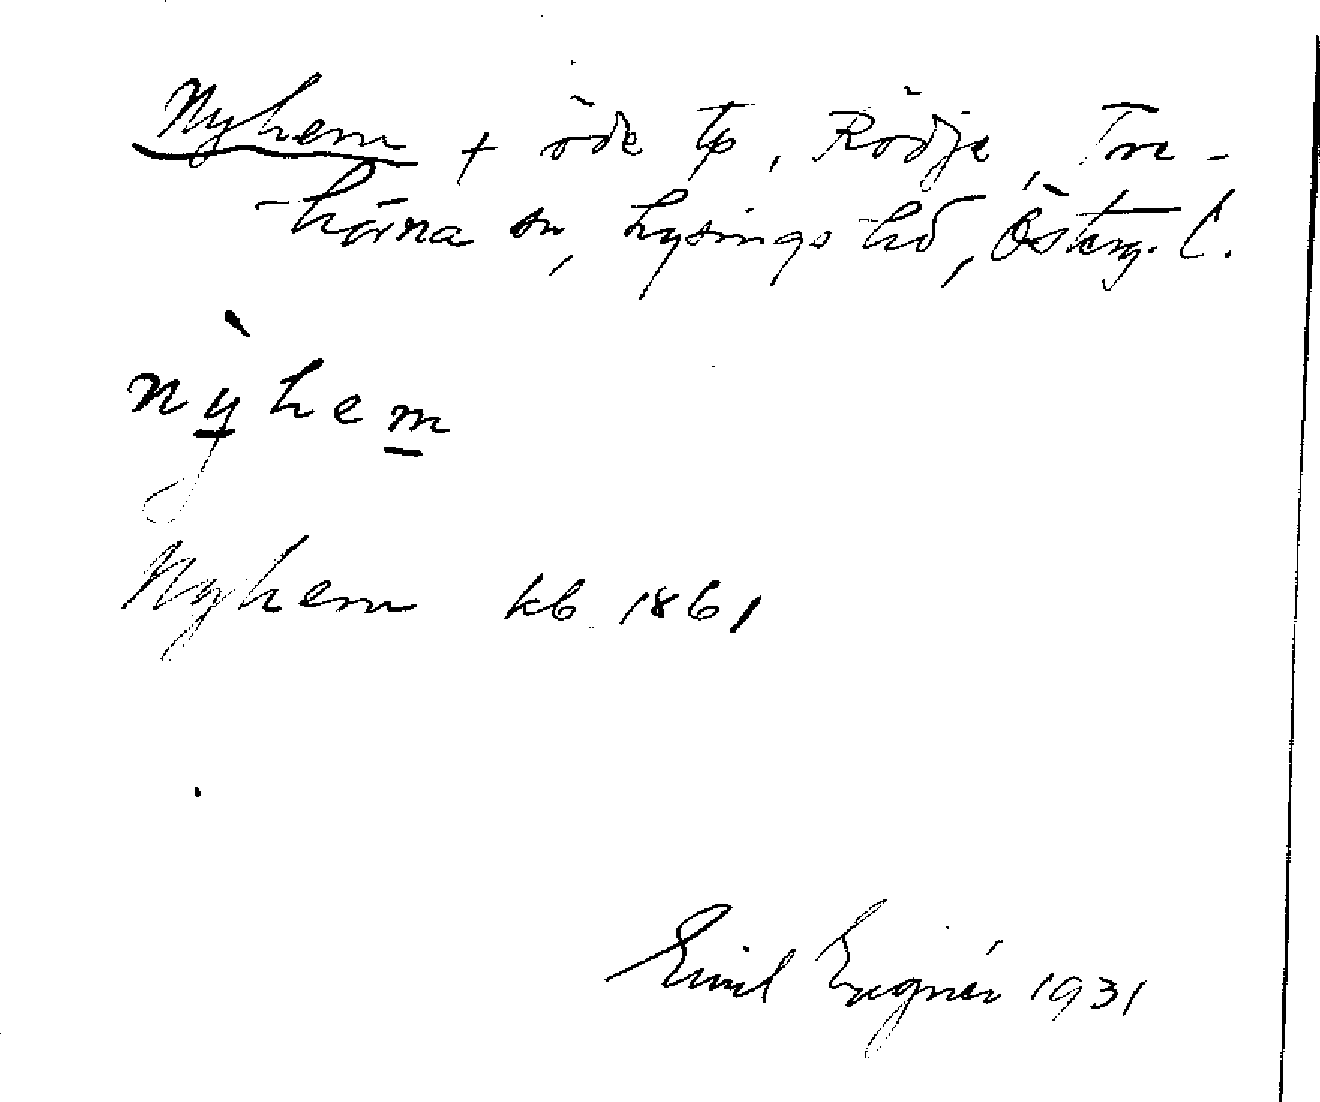 Nyhem + öde tp, Rödje, Tre-
-hörna sn, Lysings hd, Österg. l.
nỳhem
Nyhem kb. 1861
Emil 1931